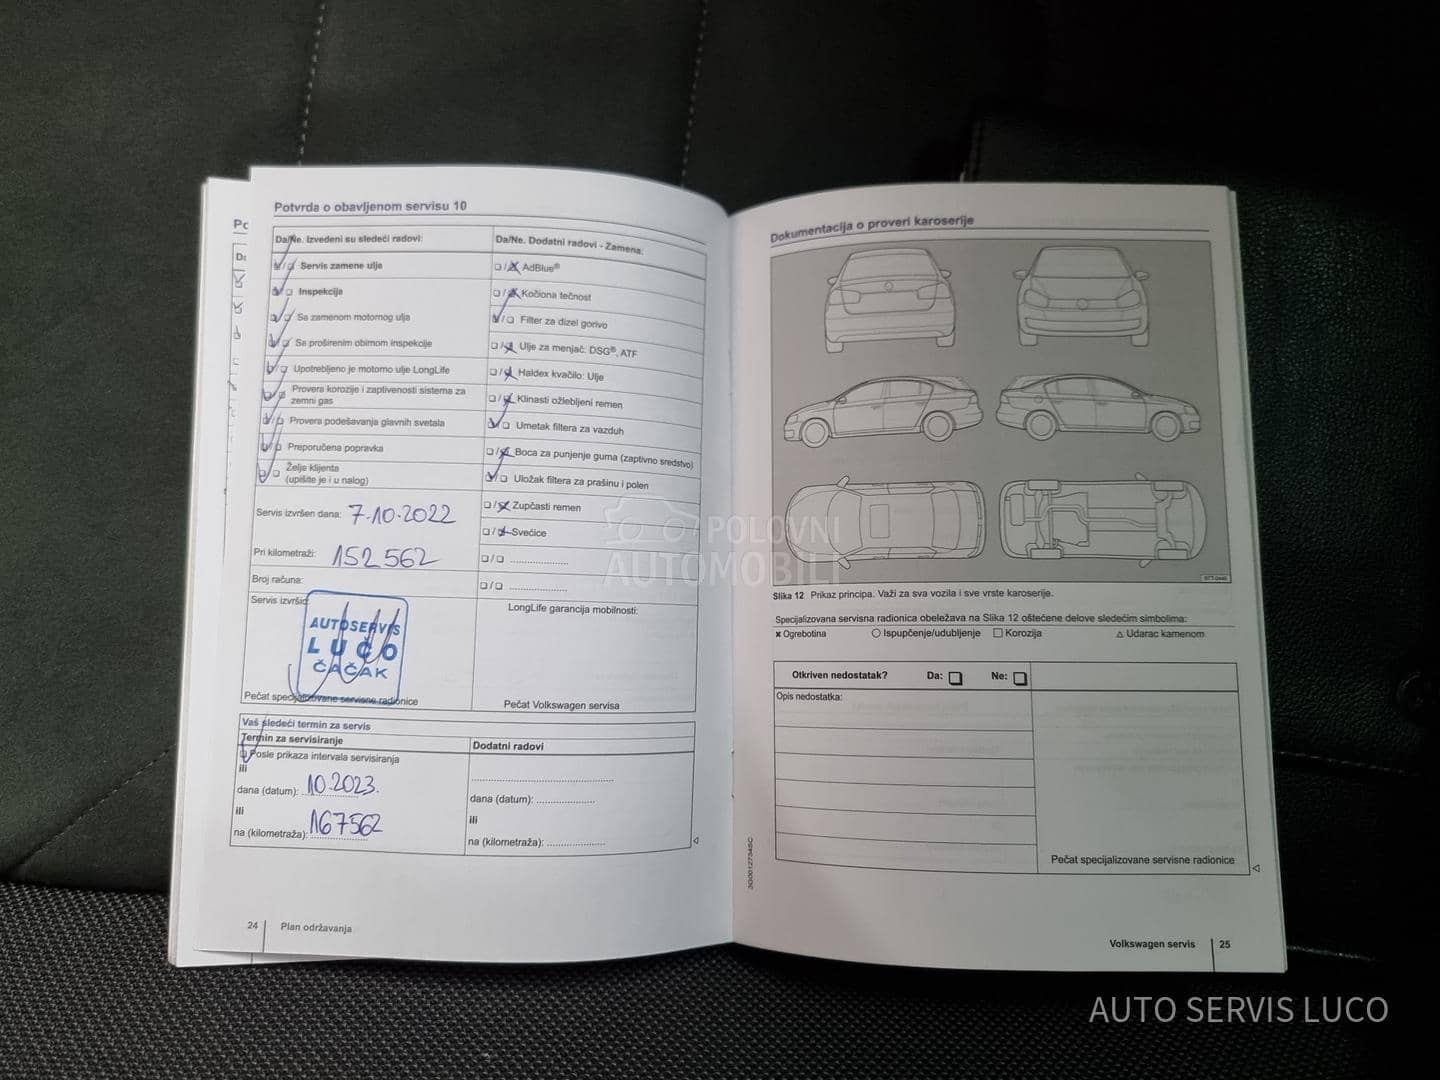 Potvrda o obavljenom servisu 10
Da/Ne. Izvedeni su sledeći radovi:
Servis zamene ulja
Inspekcija
Sa zamenom motornog ulja
Sa proširenim obimom inspekcije
Upotrebljeno je motorno ulje LongLife
Provera korozije i zaptivenosti sistema za
zemni gas
Provera podešavanja glavnih svetala
Preporučena popravka
Želje klijenta
(upišite je i u nalog)
Servis izvršen dana: 7.10.2022
Pri kilometraži: 152562
Broj računa:
Servis izvršio:
AUTOSERVIS
LUČO
ČAČAK
Pečat specijalizovane servisne radionice
Da/Ne. Dodatni radovi - Zamena:
AdBlue®
Kočiona tečnost
Filter za dizel gorivo
Ulje za menjač: DSG®, ATF
Haldex kvačilo: Ulje
Klinasti ožlebljeni remen
Umetak filtera za vazduh
Boca za punjenje guma (zaptivno sredstvo)
Uložak filtera za prašinu i polen
Zupčasti remen
Svećice
LongLife garancija mobilnosti:
Pečat Volkswagen servisa
Vaš sledeći termin za servis
Termin za servisiranje
Posle prikaza intervala servisiranja
ili
dana (datum): 10.2023.
ili
na (kilometraža): 167562
Dodatni radovi
dana (datum):
ili
na (kilometraža):
24
Plan održavanja
Dokumentacija o proveri karoserije
Slika 12 Prikaz principa. Važi za sva vozila i sve vrste karoserije.
Specijalizovana servisna radionica obeležava na Slika 12 oštećene delove sledećim simbolima:
Ogrebotina
Ispupčenje/udubljenje
Korozija
Udarac kamenom
Otkriven nedostatak? Da: Ne:
Opis nedostatka:
Pečat specijalizovane servisne radionice
Volkswagen servis
25
POLOVNI
AUTOMOBILI
AUTO SERVIS LUCO